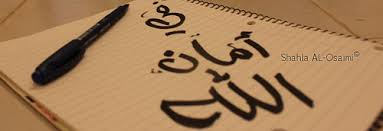 في
أمان
الله
Shahla AL-Osaimi©